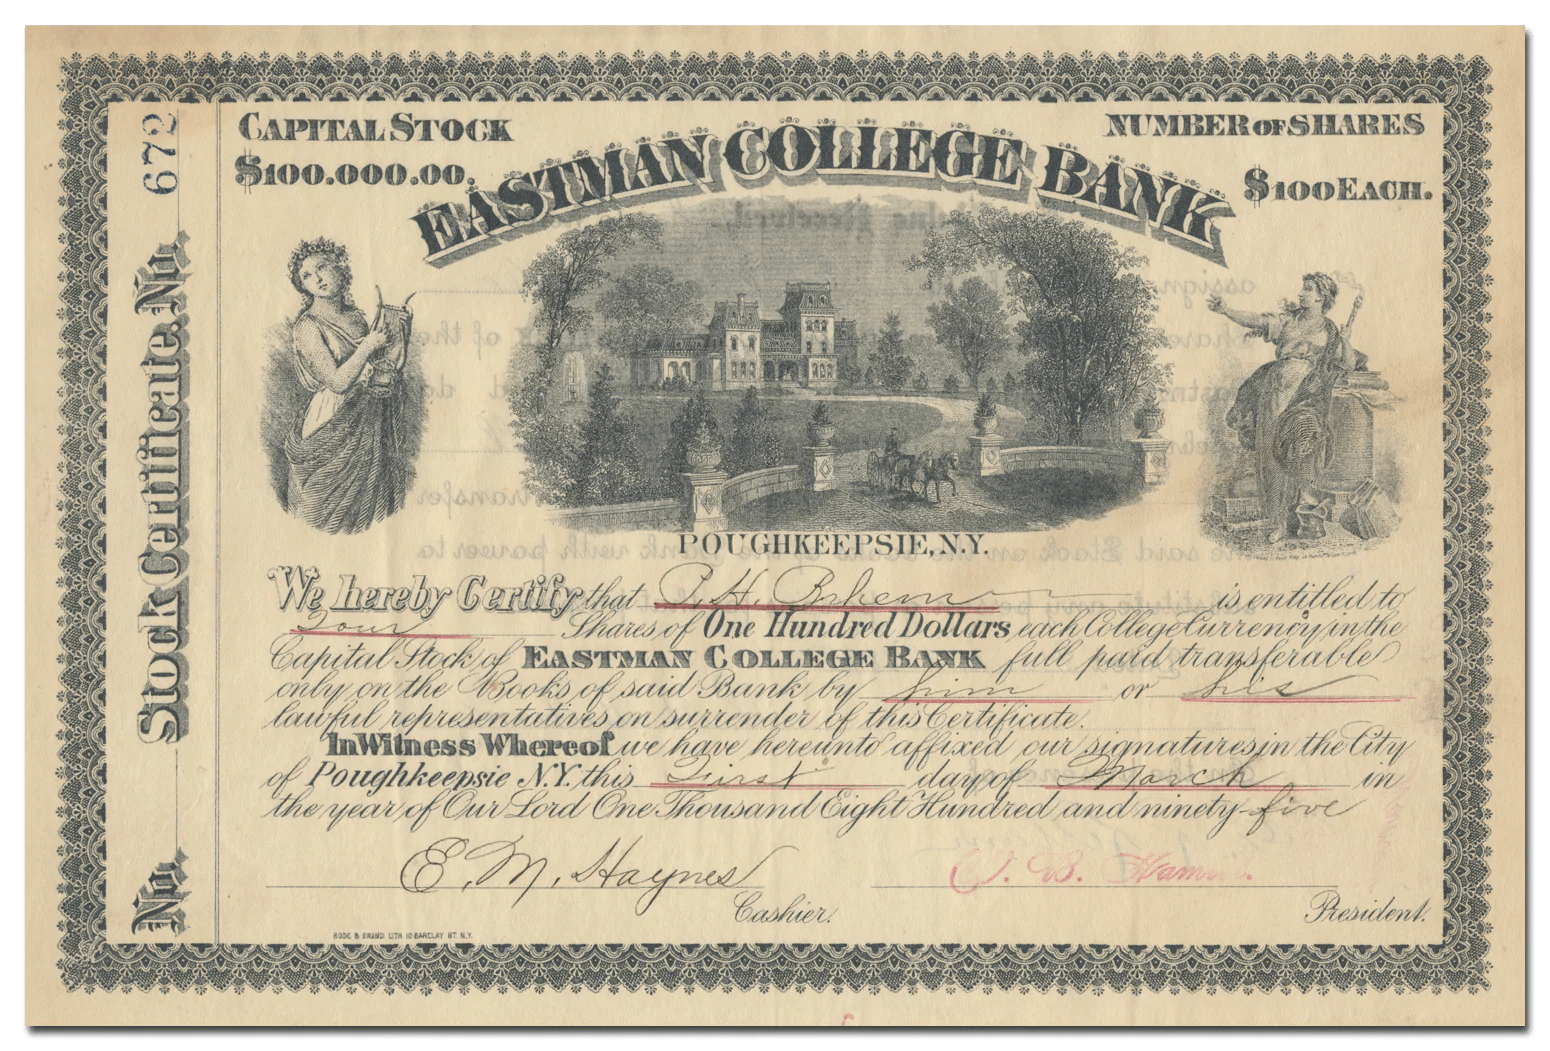 No. Stock Certificate. No. 672
CAPITAL STOCK
$100.000.00.
EASTMAN COLLEGE BANK
NUMBER OF SHARES
$100 EACH.
POUGHKEEPSIE, N.Y.
We hereby Certify that P. H. is entitled to
Four Shares of One Hundred Dollars each College Currency in the
Capital Stock of EASTMAN COLLEGE BANK full paid transferable
only on the Books of said Bank by him or his
lawful representatives on surrender of this Certificate.
In Witness Whereof we have hereunto affixed our signatures in the City
of Poughkeepsie N.Y. this First day of March in
the year of Our Lord One Thousand Eight Hundred and ninety-five
E. M. Haynes
Cashier.
President.
LITH 10 BARCLAY ST. N.Y.